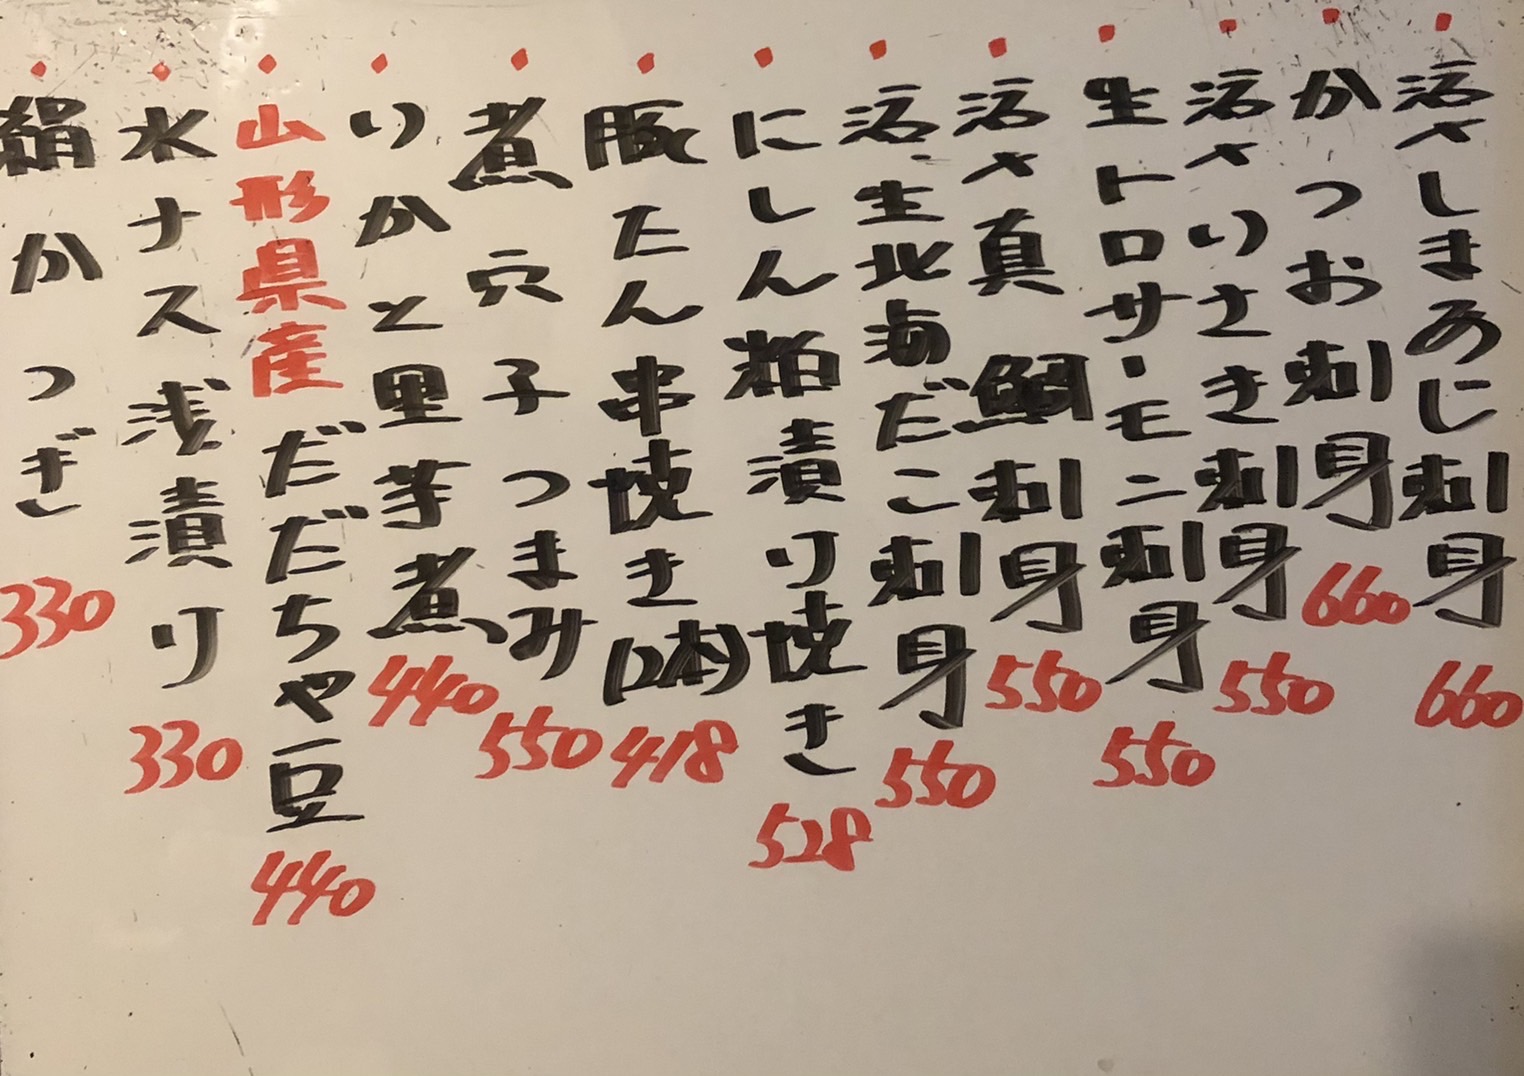 活〆しまあじ刺身 660
かつお刺身 660
活〆いさき刺身 550
生トロサーモン刺身 550
活〆真鯛刺身 550
活、生北海だこ刺身 550
にしん粕漬り焼き 528
豚たん串焼き(2本) 418
煮穴子つまみ 550
いかと里芋煮 440
山形県産だだちゃ豆 440
水ナス浅漬り 330
絹かつぎ 330